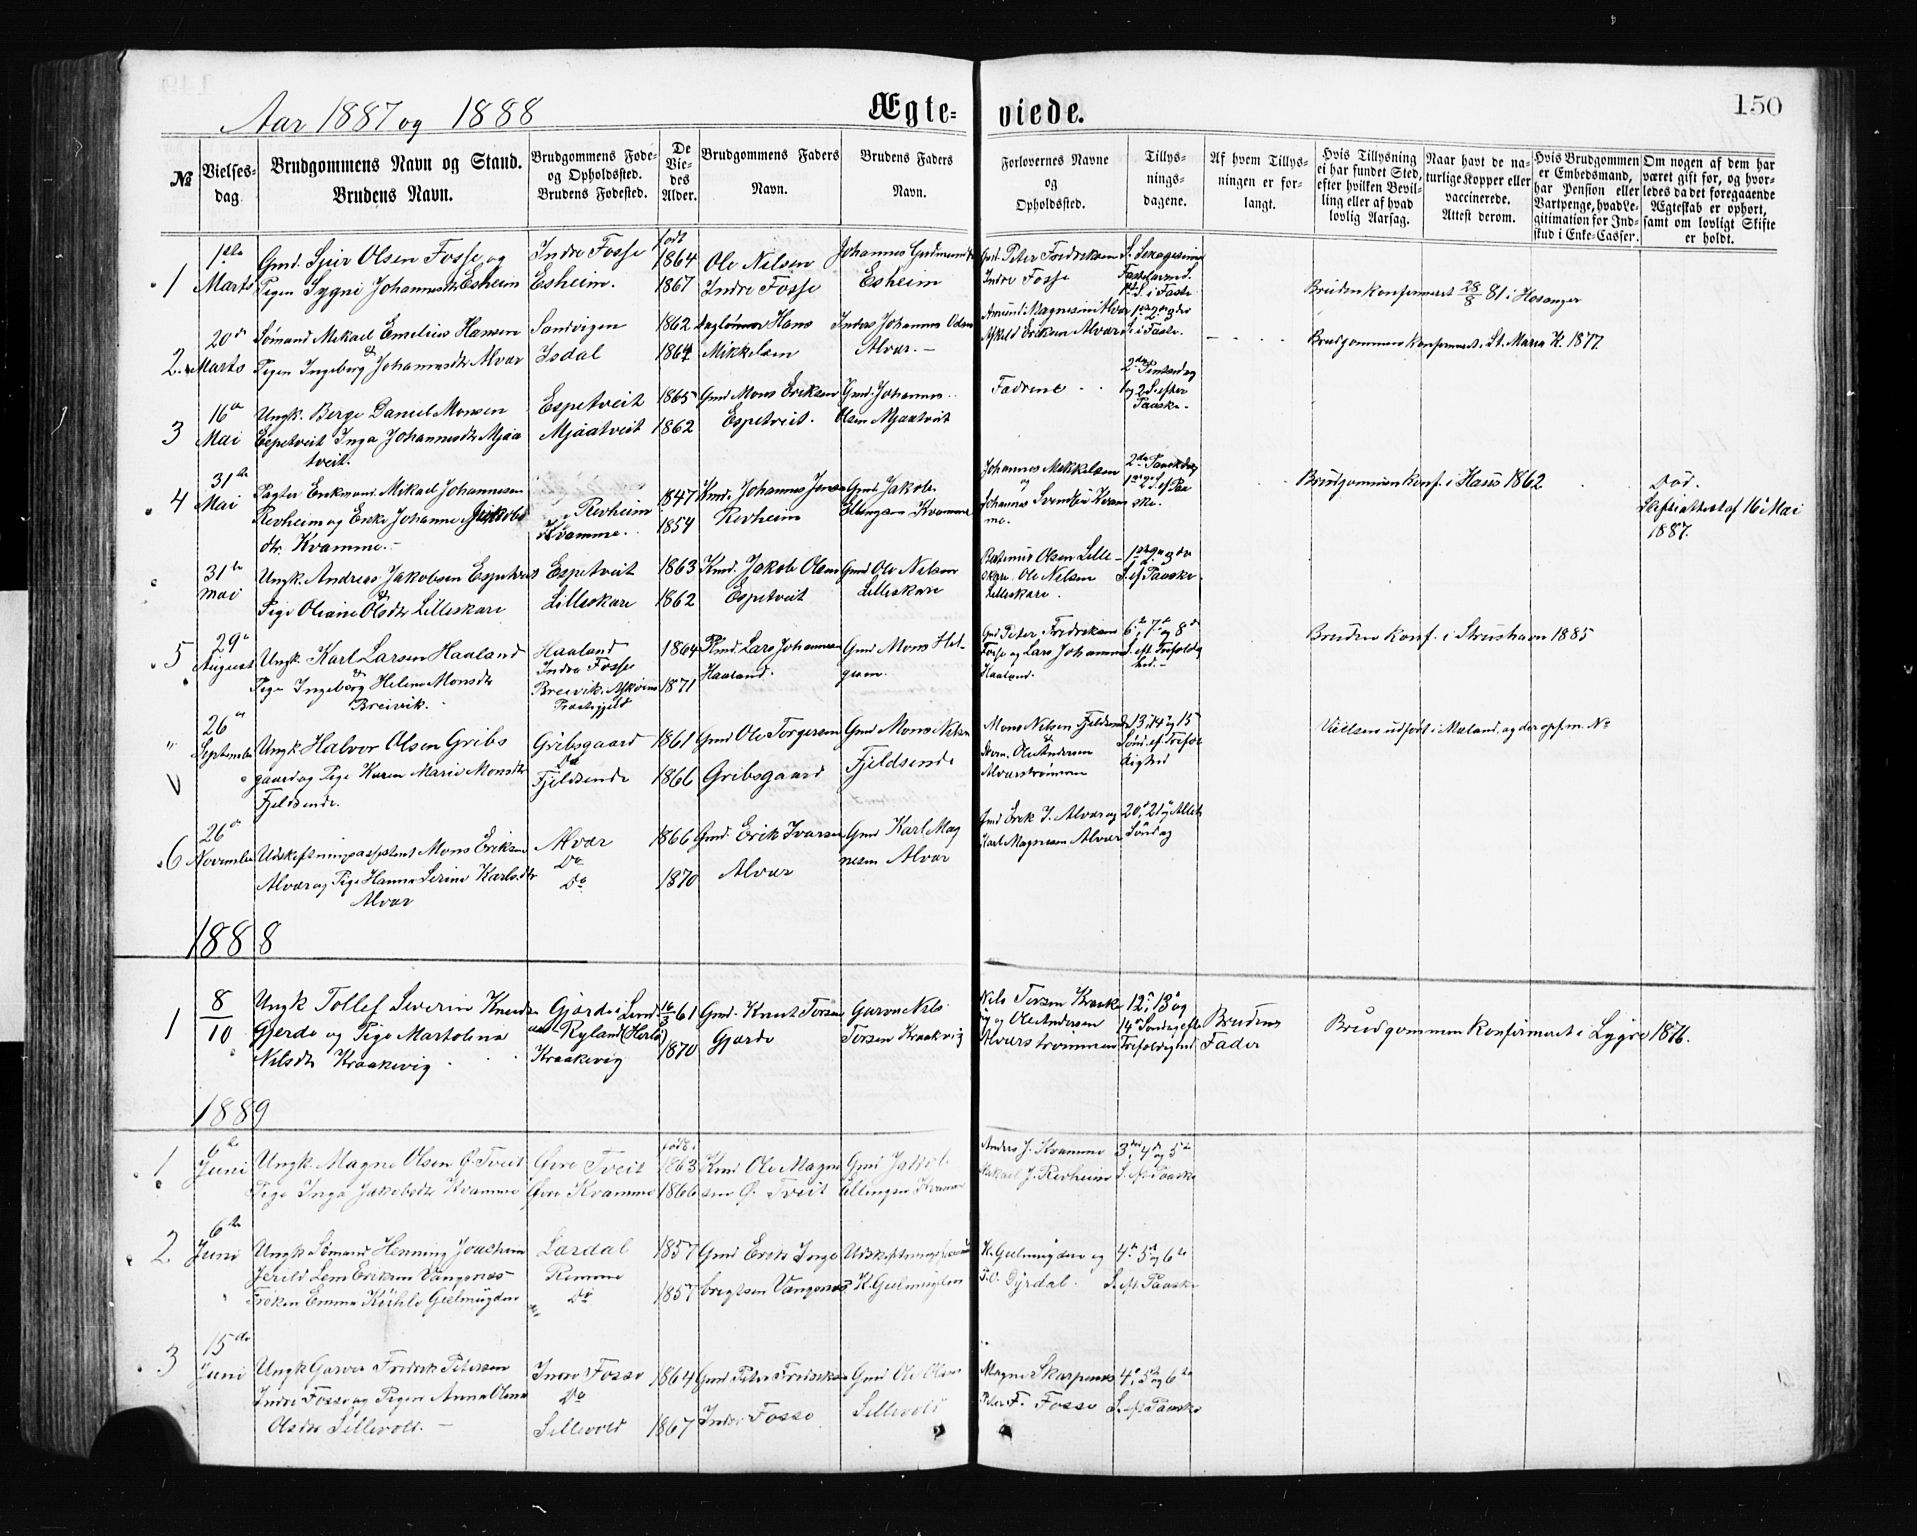 Aar 1887 og 1888
Ægte-
viede.
150
№
Vielses-
dag
Brudgommens Navn og Stand.
Brudens Navn.
Brudgommens Føde-
og Opholdssted.
Brudens Fødested.
De
Vie-
des
Alder.
Brudgommens Faders
Navn.
Brudens Faders
Navn.
Forlovernes Navne
og
Opholdssted.
Tillys-
nings-
dagene.
Af hvem Tillys-
ningen er for-
langt.
Hvis Tillysning
ei har fundet Sted,
efter hvilken Bevil-
ling eller af hvad
lovlig Aarsag.
Naar havt de na-
turlige Kopper eller
vaccinerede.
Attest derom.
Hvis Brudgommen
er Embedsmand,
har Pension eller
Vartpenge, hvad Le-
gitimation for Ind-
skud i Enke-Casser.
Om nogen af dem har
været gift før, og hvor-
ledes da det foregaaende
Ægteskab er ophørt,
samt om lovligt Skifte
er holdt.
1
1ste
Marts
Gmd. Sjur Olsen Fosse og
Pigen Sygni Johannesdtr Esheim
Indre Fosse
Esheim.
født
1864
1867
Ole Nilsen
Indre Fosse
Johannes Gudmunds
Esheim
Gmd. Peter Fredriksen
Indre Fosse
S. Sexagesima
Fastelavns S.
1ste S. i Faste
Bruden konfirmeret 28/8 81 i Hosanger
2
20de
Marts
Sømand Mikael Emelius Hansen
Pigen Ingeborg Johannesdtr Alvær
Sandvigen
Isdal
1862
1864
Daglønner Hans
Mikkelsen
Inders Johannes Olsen
Alvær. -
Amund Magnesen Alvær
Askild Eriksen Alvær
1ste 2den og 3die
S. i Faste.
Brudgommen konfirmeret i St. Maria K. 1877.
3
16de
Mai
Ungk. Berge Daniel Monsen
Espetveit Inga Johannesdtr Mjaa
tveit.
Espetveit
Mjaatveit
1865
1862
Gmd Mons Eriksen
Espetveit.
Gmd. Johannes
Olsen Mjaatveit
Fædrene
2den Pintsedag
1 og 2 S. efter
Paaske.
4
31te
Mai
Pagter Enkemand Mikael Johannesen
Revheim og Enke Johanne Jakobs
dtr. Kvamme. -
Revheim
Kvamme.
1847
1854
Kmd. Johannes Jensen
Revheim
Gmd. Jakob
Ellingsen Kvamme
Johannes Mikkelsen
og
Johannes Svendsen Kvam
me.
2den Paaskedag
1ste 2den S. ef. Paa
ske.
Brudgommen konf. i Haus 1862
Død.
Skifteattest af 16de Mai
1887.
31te
Mai
Ungk. Andreas Jakobsen Espetveit
Pige Oliane Olsdtr Lilleskare
Espetveit
Lilleskare
1863
1862
Kmd. Jakob Olsen
Espetveit
Gmd Ole Nilsen
Lilleskare
Rasmus Olsen Lille-
skare. Ole Nilsen
Lilleskare.
1ste 2den og 3die
S. ef. Paaske
5
29de
August
Ungk. Karl Larsen Haaland
Pige Ingeborg Helene Monsdtr
Breivik.
Haaland
Indre Fosse
Breivik Askøens
Præstegjeld
1864
1871
Kmd. Lars Johannesen
Haaland.
Gmd Mons Hel-
gesen.
Gmd Peter Fredriksen
Fosse og Lars Johannes
Haaland.
6te, 7de og 8de
S. eft. Trefoldig
hed. -
Bruden konf. i Strushavn 1885
"
26de
September
Ungk. Halvor Olsen Gribs
gaard og Pige Karen Marie Monsdtr
Fjeldsende.
Gribsgaard
Do
Fjeldsende
1861
1866
Gmd Ole Torgersen
Gribsgaard
Gmd Mons Nilsen
Fjeldsende
Mons Nilsen Fjeldsende
Ole Andersen
Alværstrømmen
13, 14 og 15
Sønd. ef. Trefol
dighed
Vielsen udført i Mæland og der opf. m. No
6
26de
November
Udskiftningsassistent Mons Eriksen
Alvær og Pige Hanna Serine Karlsdtr
Alvær
Alvær
Do
Do
1866
1870
Gmd. Erik Ivarsen
Alvær
Gmd Karl Mag
nesen Alvær
Gmd Erik I. Alvær og
Karl Magnesen Alvær
20de, 21de og Allehl
Søndag
1888
1
8/10
Ungk Tollef Severin Knudsen
Gjerde og Pige Martolina
Nilsdtr Kraakevig
Gjerde i Lind
aas Ryland (Herlø)
Kraakevig
16/3 61
1870
Gmd. Knut Torsen
Gjerde
Garver Nils
Torsen Kraakevig
Nils Torsen Kraake
vig og Ole Andersen
Alværstrømmen
12te, 13de og
14de Søndag efter
Trefoldighed
Brudens
Fader
Brudgommen konfirmeret i Lygre 1876.
1889
1
6te
Juni
Ungk. Magne Olsen Ø. Tveit
Pige Inga Jakobsdtr Kvamme
Øvre Tveit
Øvre Kvamme
født
1863
1866
Kmd Ole Magne
sen Ø. Tveit
Gmd Jakob
Ellingsen Kvamme
Anders J. Kvamme
Mikael J. Revheim
3die, 4de og 5te
S. ef. Paaske
2
6te
Juni
Ungk Sømand Henning Joachim
Jerild Lem Eriksen Vangsnes
Frøken Emma Kühle Geelmuyden
Lærdal
Remme
Do
1857
1857
Gmd Erik Inge
brigtsen Vangsnes
Udskiftningsformand
K. Geelmuyden
K. Geelmuyden og
P. O. Gyrdal.
4de, 5te og 6te
S. ef. Paaske
3
15de
Juni
Ungk Garver Fredrik Petersen
Indre Fosse og Pigen Anna Olena
Olsdtr Sellevold. -
Indre Fosse
Do
Sellevold
1864
1867
Gmd Peter Fredriksen
Indre Fosse
Gmd Ole Olsen
Sellevold
Magne Skarpenes
Peter F. Fosse
4de, 5te og 6te
S. ef. Paaske